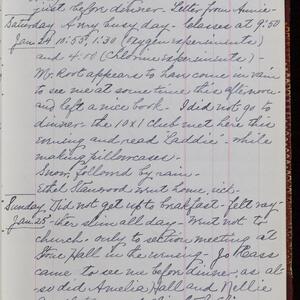 just before dinner. Letter from Annie
Saturday A very busy day - classes at 9:50
Jan 24 10:55, 1:30 (Oxygen experiments)
and 4:00 (Chlorine experiments) -
Mr. Root appears to have come in vain
to see me at some time this afternoon
and left a nice book. I did not go to
dinner. The 10x1 club met here this
evening and read "Laddie" while
making pillowcases -
Snow, followed by rain -
Ethel Stanwood went home, sick -
Sunday, Did not get up to breakfast - felt
Jan. 25 all day - Went not to
church - only to section meeting at
Stone Hall in the evening. Jo Cass
came to see me before dinner, as al-
so did Amelia Hall and Nellie